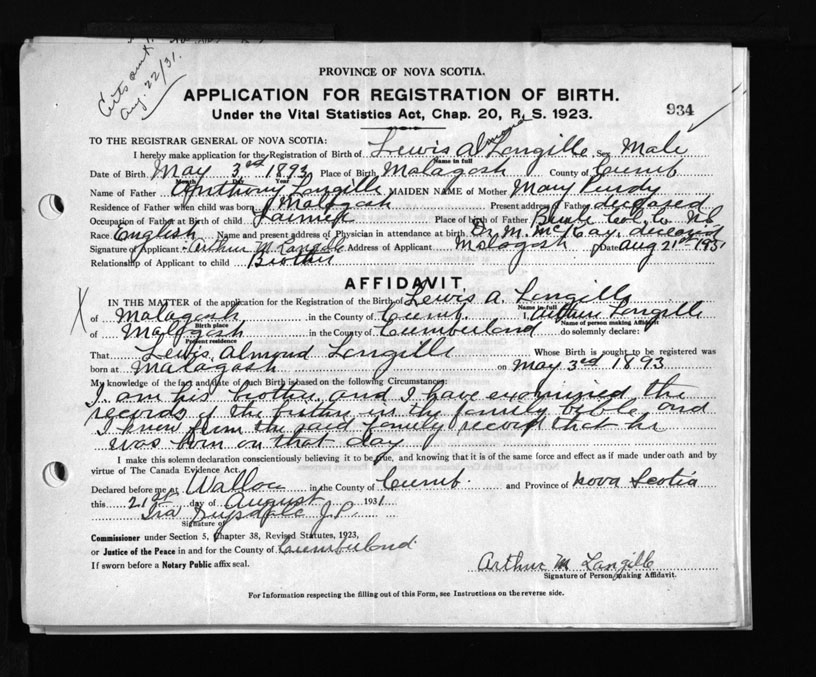 Certs sent
Aug. 22/31.
PROVINCE OF NOVA SCOTIA.
APPLICATION FOR REGISTRATION OF BIRTH.
934
Under the Vital Statistics Act, Chap. 20, R. S. 1923.
TO THE REGISTRAR GENERAL OF NOVA SCOTIA:
I hereby make application for the Registration of Birth of Lewis Almond Langille Sex Male
Name in full
Date of Birth May 3rd 1893 Place of Birth Malagash County of Cumb
Month Day Year
Name of Father Anthony Langille MAIDEN NAME of Mother Mary Purdy
Residence of Father when child was born Malagash Present address of Father deceased
Occupation of Father at Birth of child Farmer Place of birth of Father Brule Col. Co NS
Race English Name and present address of Physician in attendance at birth Dr. M. McKay. deceased
Signature of Applicant Arthur M Langille Address of Applicant Malagash Date Aug 21st 1931
Relationship of Applicant to child Brother
AFFIDAVIT.
X
IN THE MATTER of the application for the Registration of the Birth of Lewis A. Langille
Name in full
of Malagash in the County of Cumb. I, Arthur Langille
Birth place Name of person making Affidavit
of Malagash in the County of Cumberland do solemnly declare:
Present residence
That Lewis Almond Langille Whose Birth is sought to be registered was
born at Malagash on May 3rd 1893
My knowledge of the fact and date of such Birth is based on the following Circumstances:
I am his brother and I have examined the
records of the births in the family bible and
I know from the said family record that he
was born on that day
I make this solemn declaration conscientiously believing it to be true, and knowing that it is of the same force and effect as if made under oath and by
virtue of The Canada Evidence Act.
Declared before me at Wallace in the County of Cumb. and Province of Nova Scotia
this 21st day of August 1931
Ira Drysdale J.P.
Signature of
Commissioner under Section 5, Chapter 38, Revised Statutes, 1923,
or Justice of the Peace in and for the County of Cumberland
If sworn before a Notary Public affix seal.
Arthur M Langille
Signature of Person making Affidavit.
For Information respecting the filling out of this Form, see Instructions on the reverse side.